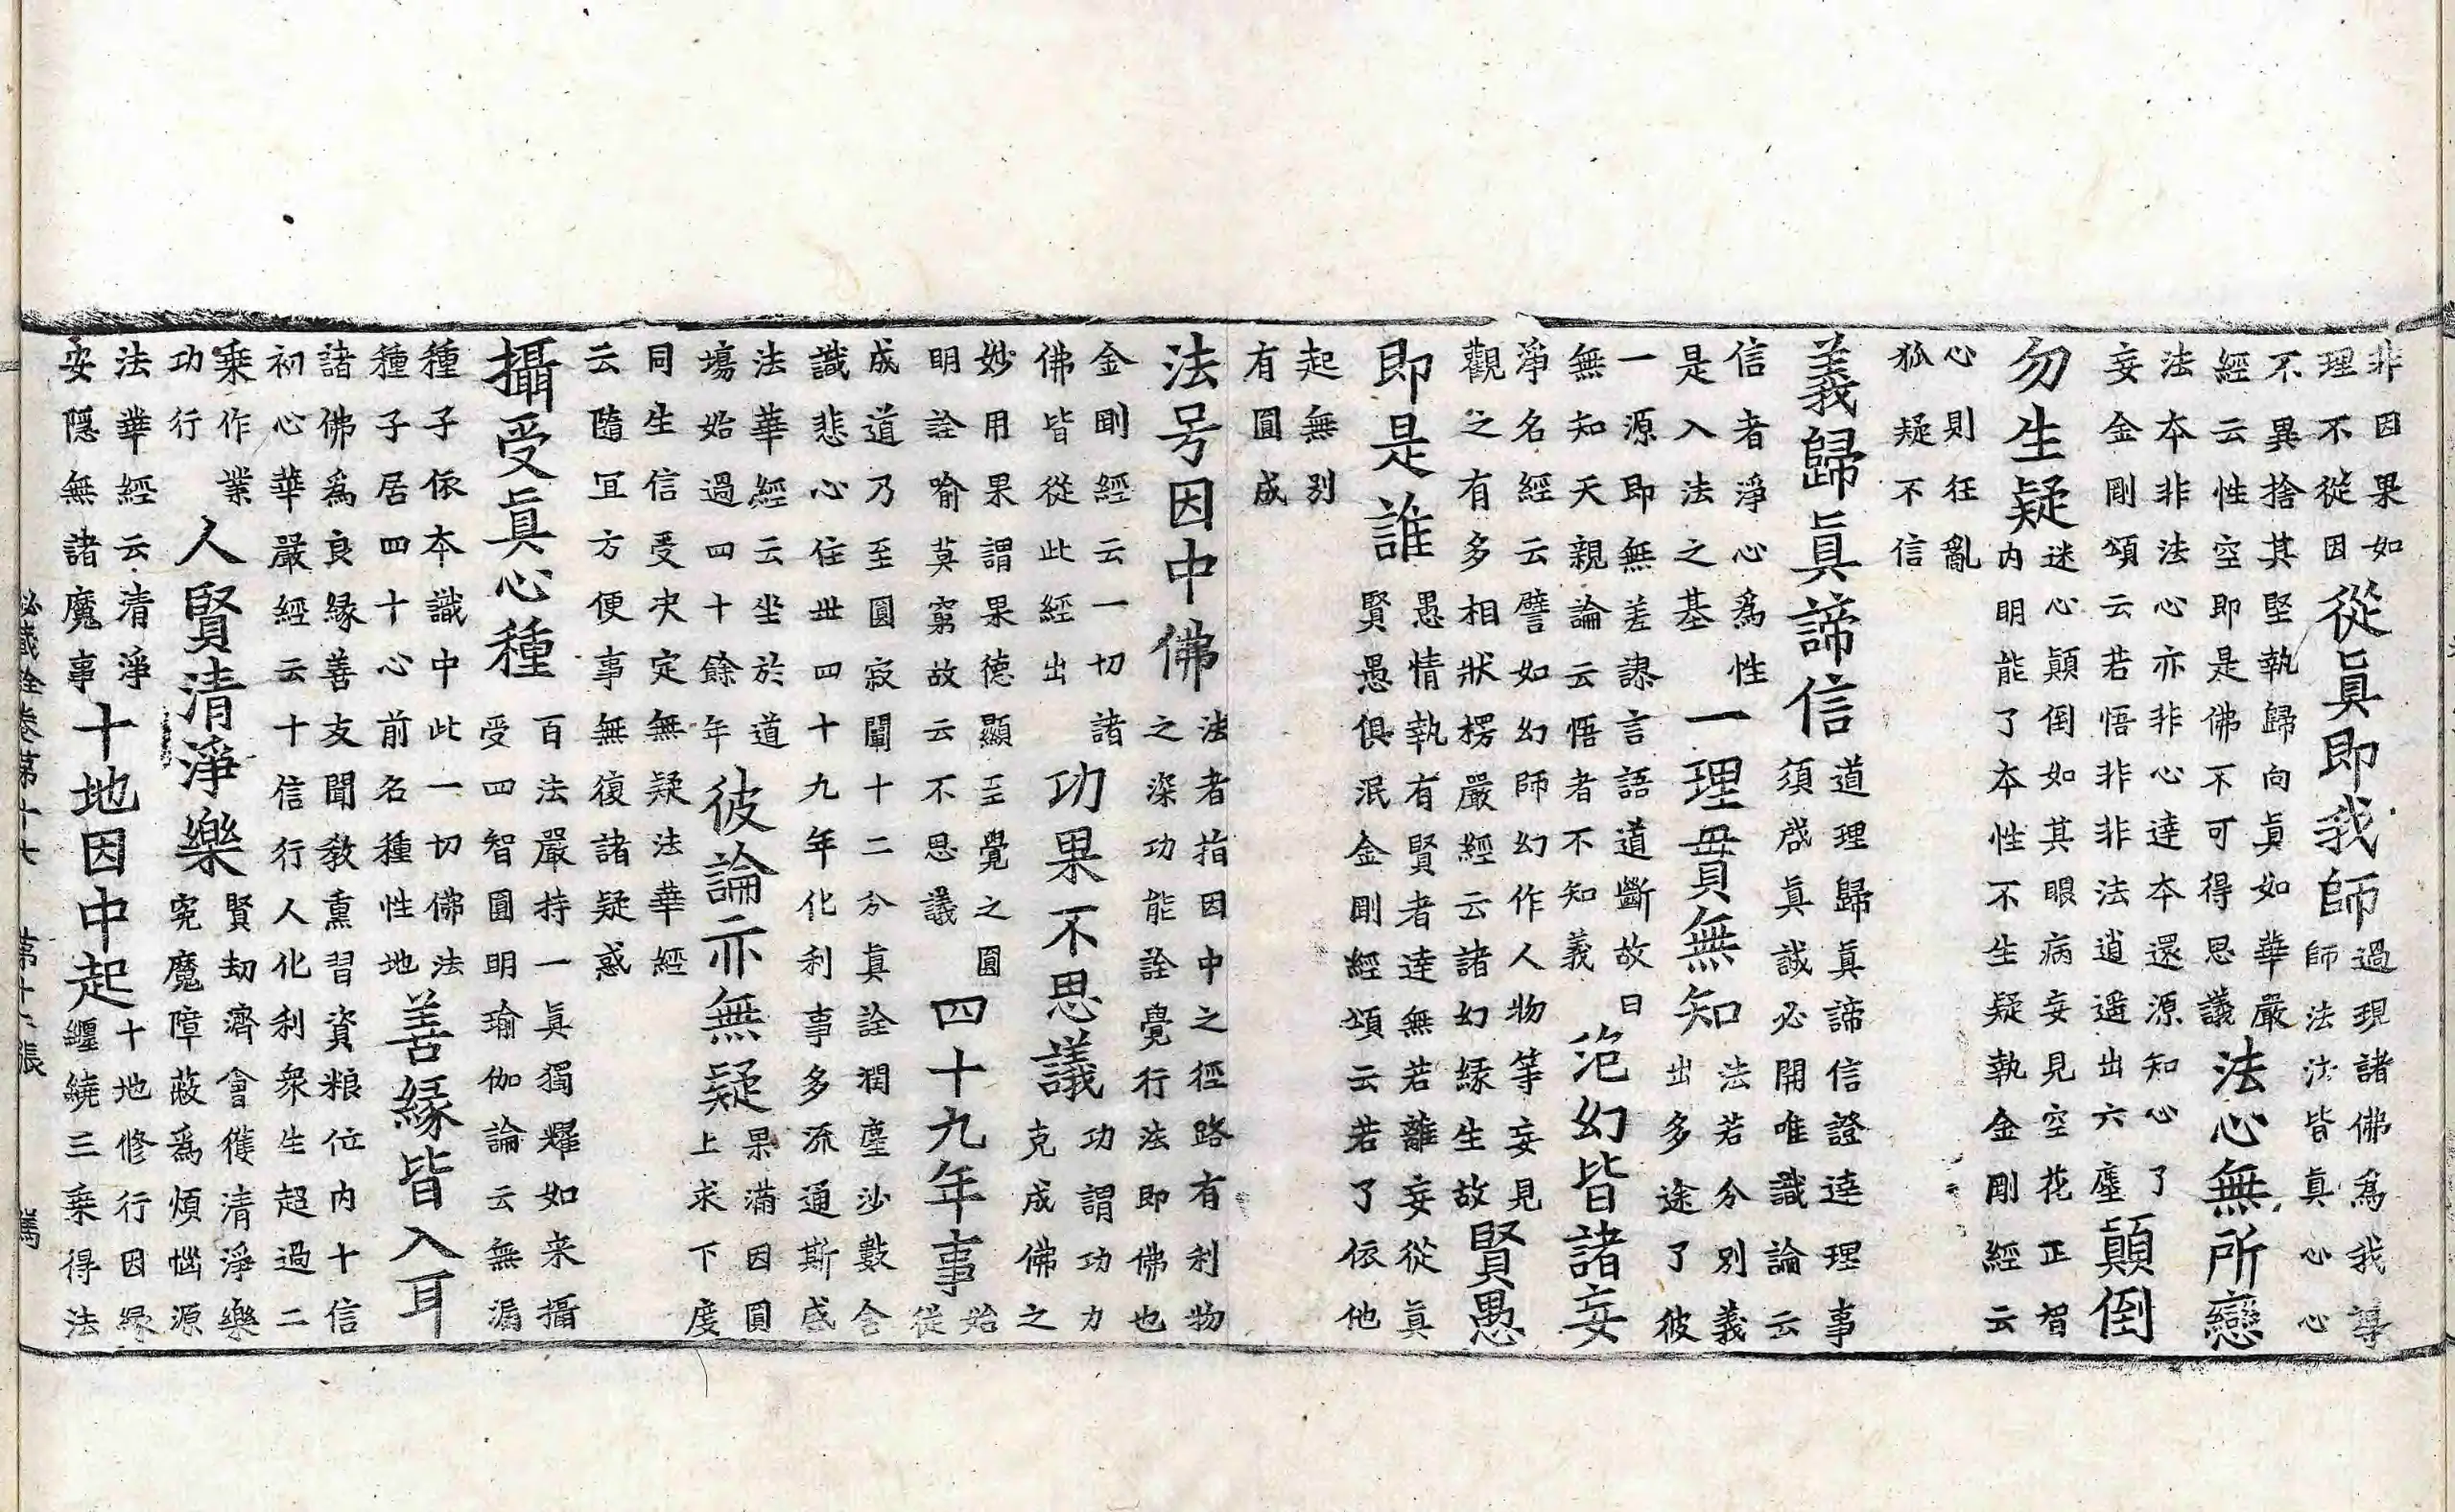 非因果如理不從因從眞即我師過現諸佛爲我尋師法法皆眞心心
不異捨其堅執歸向眞如華嚴經云性空即是佛不可得思議法心無所戀
法本非法心亦非心達本還源知心了妄金剛頌云若悟非非法逍遥出六塵顛倒
勿生疑迷心顛倒如其眼病妄見空花正智内明能了本性不生疑執金剛經云
心則狂亂狐疑不信
義歸眞諦信道理歸眞諦信證達理事須啓眞誠必開唯識論云
信者淨心爲性是入法之基一理貫無知法若分別義出多途了彼
一源即無差謬言語道斷故曰無知天親論云悟者不知義笵幻皆諸妄
淨名經云譬如幻師幻作人物等妄見觀之有多相狀楞嚴經云諸幻緣生故賢愚
即是誰愚情執有賢者達無若離妄從眞賢愚俱泯金剛經頌云若了依他
起無別有圓成
法号因中佛法者指因中之徑路有利物之深功能詮覺行法即佛也
金剛經云一切諸佛皆從此經出功果不思議功謂功力克成佛之
妙用果謂果德顯至覺之圓明詮喻莫窮故云不思議四十九年事始從
成道乃至圓寂闡十二分眞詮潤塵沙數含識悲心住丗四十九年化利事多流通斯感
法華經云坐於道塲始過四十餘年彼論亦無疑果滿因圓上求下度
同生信受決定無疑法華經云隨冝方便事無復諸疑惑
攝受眞心種百法嚴持一眞獨耀如来攝受四智圓明瑜伽論云無漏
種子依本識中此一切佛法種子居四十心前名種性地善緣皆入耳
諸佛爲良緣善友聞教熏習資粮位内十信初心華嚴經云十信行人化利衆生超過二
乗作業功行人賢清淨樂賢劫濟會獲清淨樂寃魔障蔽爲煩惱源
法華經云清淨安隱無諸魔事十地因中起十地修行因緣纏繞三乗得法